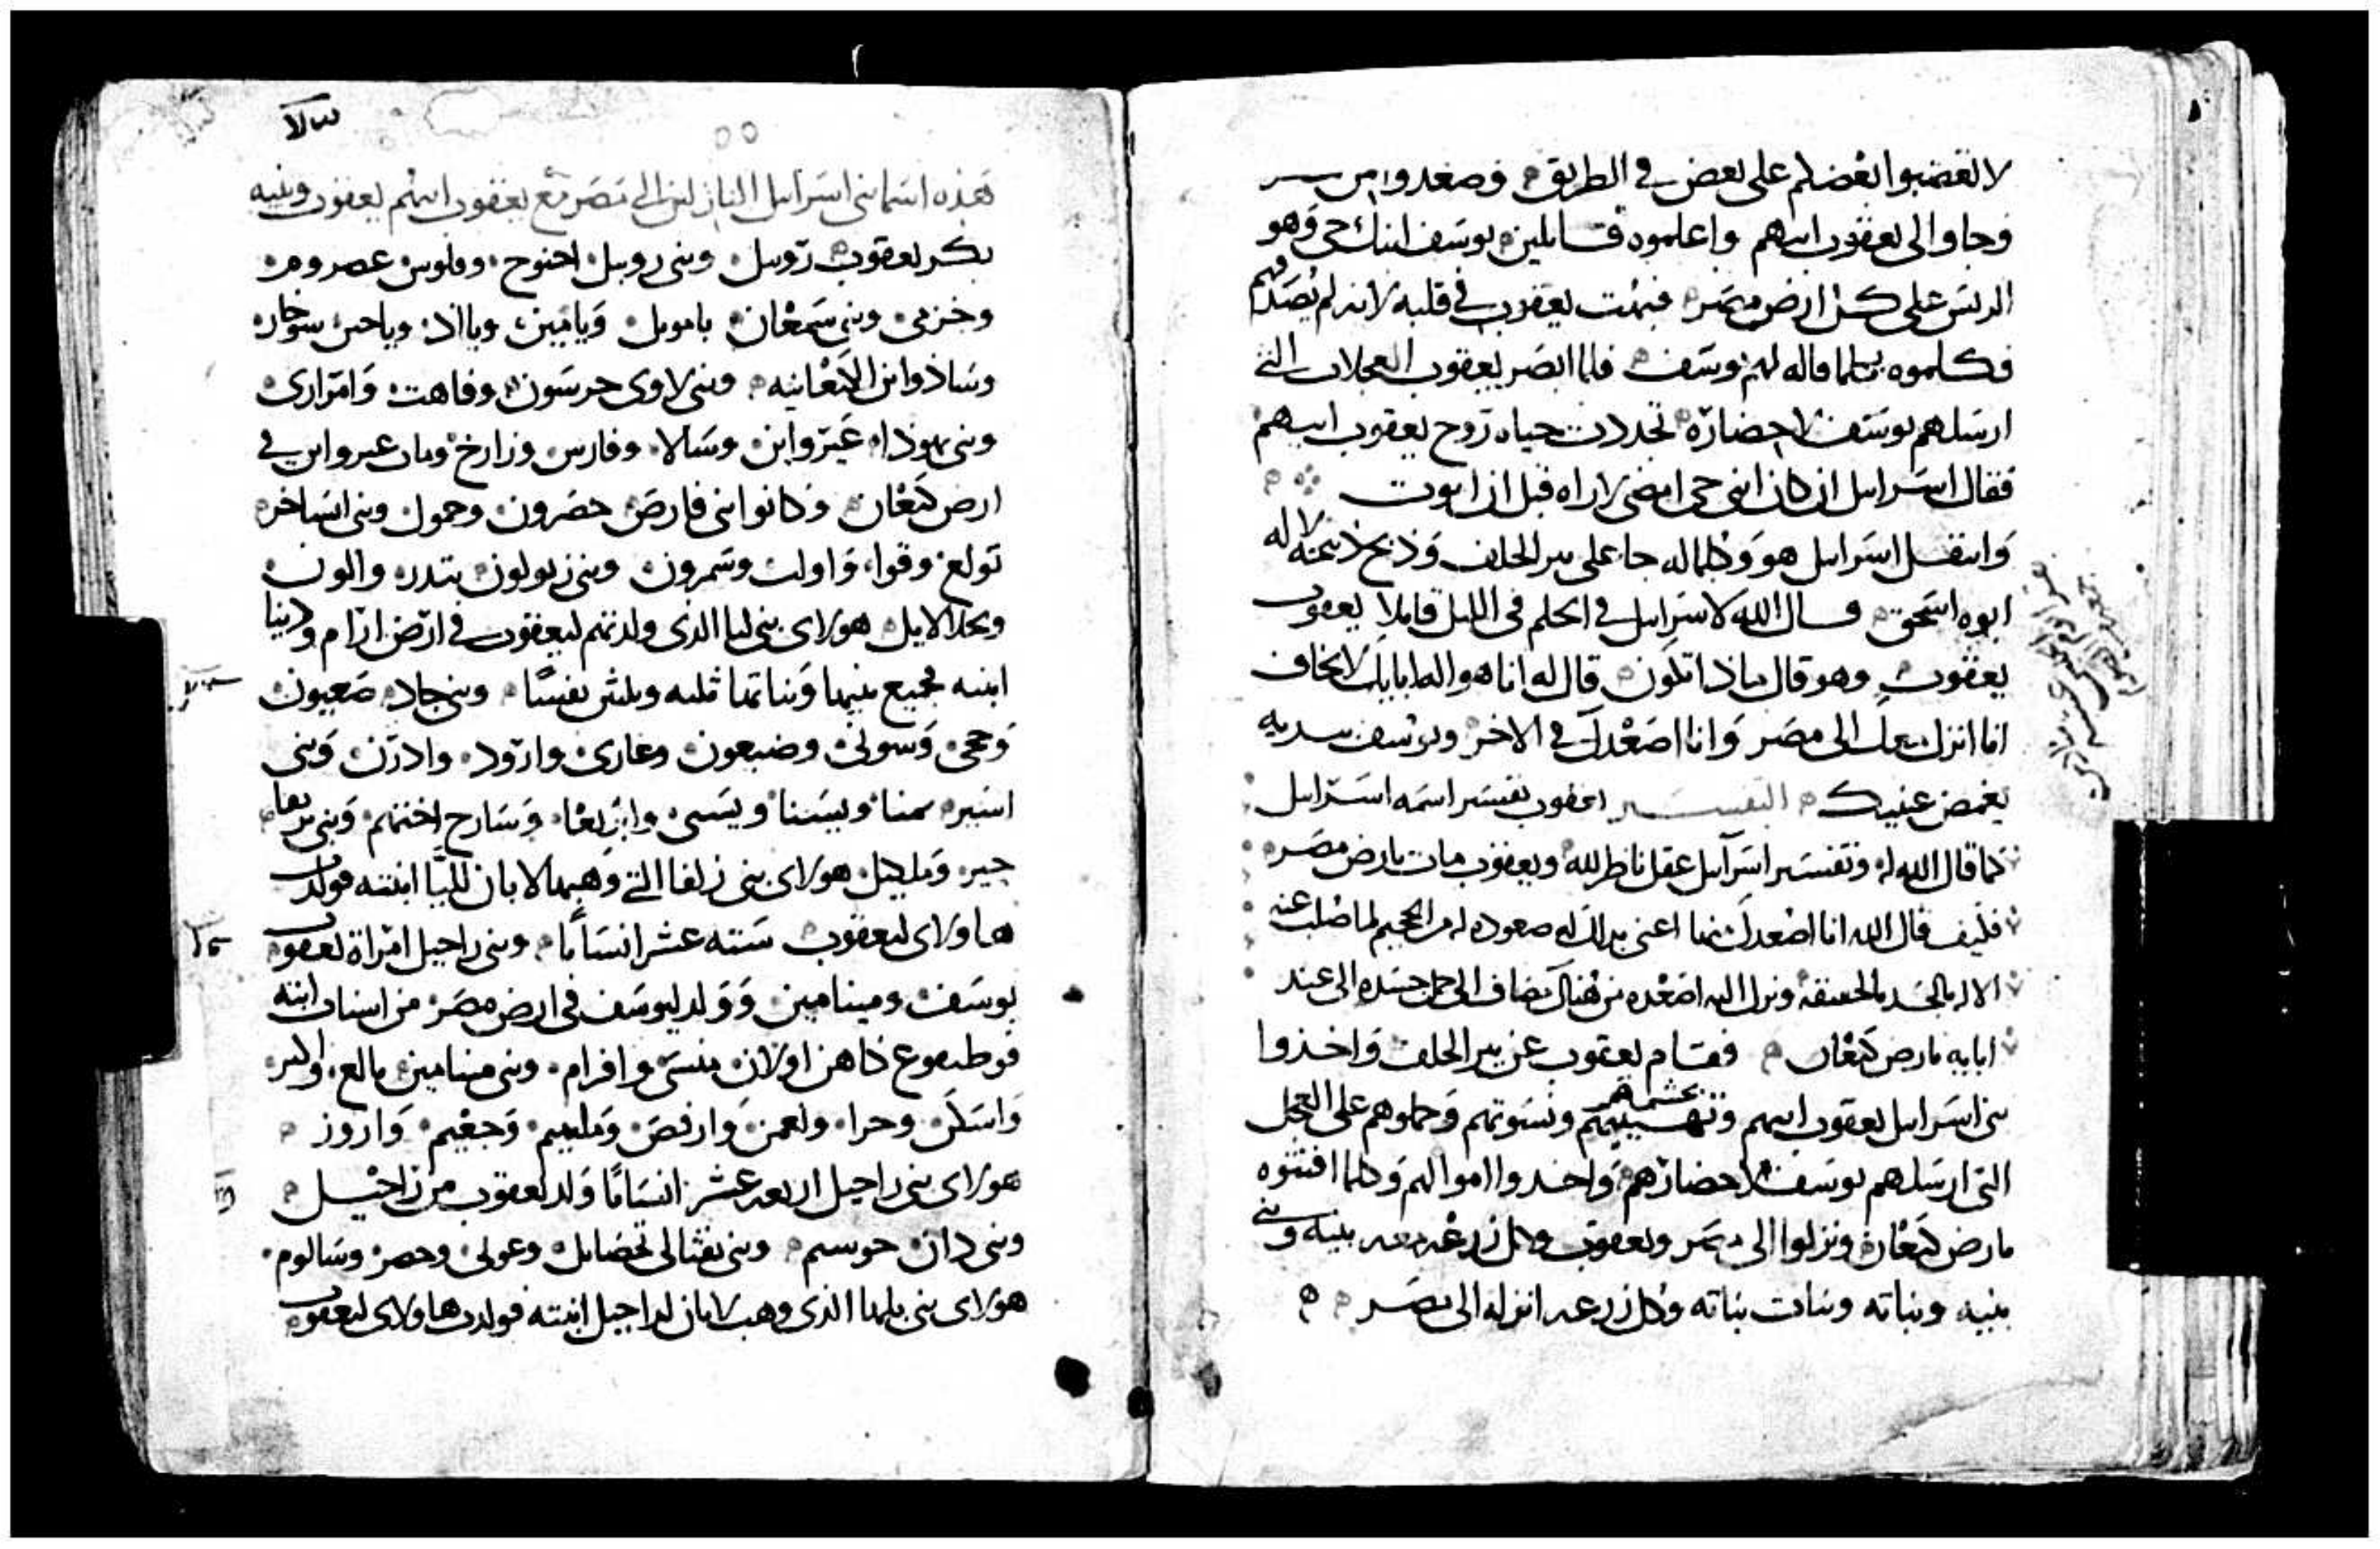 لا تغضبوا بعضكم على بعض في الطريق فصعدوا من
وجاوا الى يعقوب ابيهم واعلموه قايلين يوسف ابنك حي وهو
الريس على كل ارض مصر فبهت يعقوب في قلبه لانه لم يصدقهم
فكلموه بكلما قاله لهم يوسف فلما ابصر يعقوب العجلات التي
ارسلهم يوسف لاحضاره تجددت حياه روح يعقوب ابيهم
فقال اسراييل ان كان ابني حي امضي لاراه قبل ان اموت
وانتقل اسراييل هو وكلما له جا على بير الحلف وذبح ذبيحه لاله
ابوه اسحق وقال الله لاسراييل في الحلم في الليل قايلا يعقوب
يعقوب وهو قال ماذا تكون قال له انا هو اله ابايك لا تخاف
انا انزل معك الى مصر وانا اصعدك في الاخر ويوسف يديه
يغمض عنيك التفسير يعقوب تفسير اسمه اسراييل
كما قال الله له وتفسير اسراييل عقل ناظر لله ويعقوب مات بارض مصر
فكيف قال الله انا اصعدك منها اعنى بذلك صعوده من الجحيم لما صلب عنه
الاله بالجسد بالحقيقه ونزل اليه اصعده من هناك مضاف الى حمل جسده الى عند
ابايه بارض كنعان فقام يعقوب عن بير الحلف واخذوا
بني اسراييل يعقوب ابيهم وحشمهم ونسوتهم وحملوهم على العجل
التي ارسلهم يوسف لاحضارهم واخذوا اموالهم وكلما اقتنوه
بارض كنعان ونزلوا الى مصر ويعقوب وكل زرعه معه بنيه وبني
بنيه وبناته وبنات بناته وكل زرعه انزله الى مصر
هذه اسما بني اسراييل النازلين الى مصر مع يعقوب ابيهم يعقوب وبنيه
بكر يعقوب روبيل وبني روبيل احنوح وفلوس عصروم
وخزمي وبني سمعان يامويل ويامين ويااد وياحين سوخار
وساذ وابن الكنعانيه وبني لاوي جرسون وقاهت وامراري
وبني يهوذا عير وابن وسالا وفارس وزارخ ومات عير وابن في
ارض كنعان وكانوا بني فارص حصرون وحمول وبني ايساخر
تولع وقوا واوب وسمرون وبني زبولون بتدر والون
وبحلاليل هولاي بني ليا الذي ولدتهم ليعقوب في ارض ارام ودينا
ابنته فجميع بنيها وبناتها ثلثه وثلثين نفسا وبني جاد صعيون
وحجي وسوني وضبعون وعاري وارود وادرن وبني
اشير يمنا ويسنا ويسى وابريعا وسارح اختهم وبني بريعا
جبر وملجيل هولاي بني زلفا التي وهبها لابان لليا ابنته فولدت
هاولاي ليعقوب سته عشر انسانا وبني راحيل امراة يعقوب
يوسف ومينامين وولد ليوسف في ارض مصر من اسنات ابنه
فوطيفرع كاهن اولان منسى وافرام وبني مينامين بالع والبر
واسكر وحرا ولعمن وارفص ومليم وجعيم واروز
هولاي بني راحيل اربعه عشر انسانا ولد يعقوب من راحيل
وبني دان حوسيم وبني نفثالي تحضايل وعوني وحصر وسالوم
هولاي بني بلها الذي وهب لابان لراحيل ابنته فولدت هاولاي ليعقوب